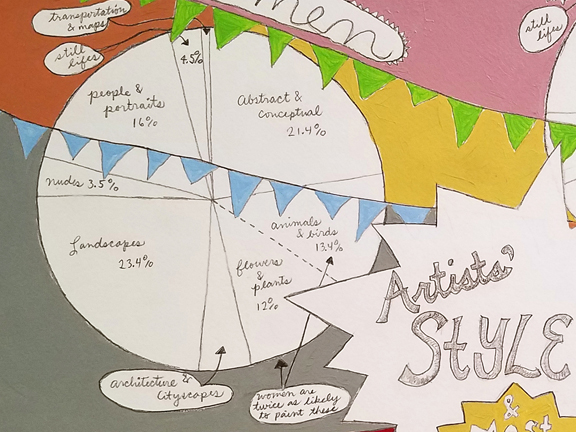 transportation
& maps
men
still
lifes
still
lifes
4.5%
people &
portraits
16%
Abstract &
conceptual
21.4%
nudes 3.5%
animals
& birds
13.4%
Landscapes
23.4%
flowers
&
plants
12%
Artists'
STYLE
&
Most
architecture &
Cityscapes
women are
twice as likely
to paint these